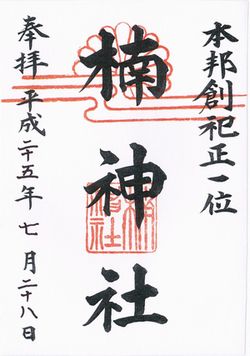 本邦創祀正一位
楠神社
奉拝 平成二十五年 七月二十八日